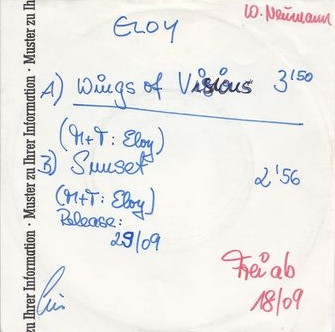 W. Neumann
ELOY
A) Wings of Visions 3'50
(M+T: Eloy)
B) Sunset 2'56
(M+T: Eloy)
Release:
29/09
Frei ab
18/09
zu Ihrer Information · Muster zu Ihrer Information · Muster zu Ih